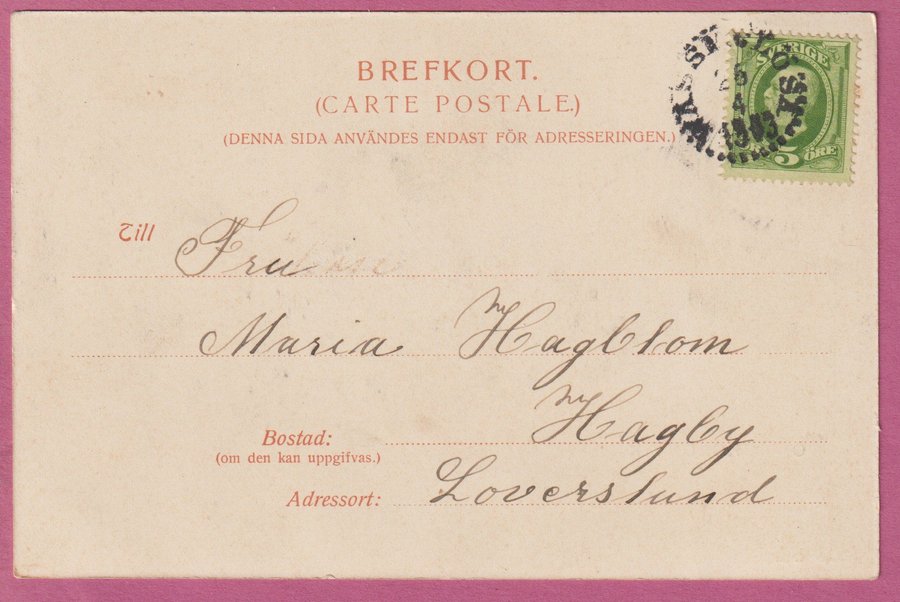 BREFKORT.
(CARTE POSTALE.)
(DENNA SIDA ANVÄNDES ENDAST FÖR ADRESSERINGEN.)
SVERIGE
5 ÖRE
Till Fru
Maria Hagblom
Bostad: Hagby
(om den kan uppgifvas.)
Adressort: Loverslund